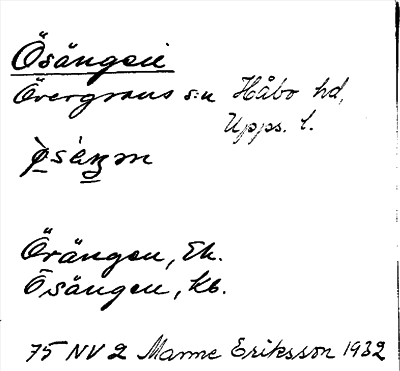 Ösängen
Övergrans sn Håbo hd,
Upps. l.
Örängen, Ek.
Ösängen, Kb.
75 NV 2 Manne Eriksson 1932